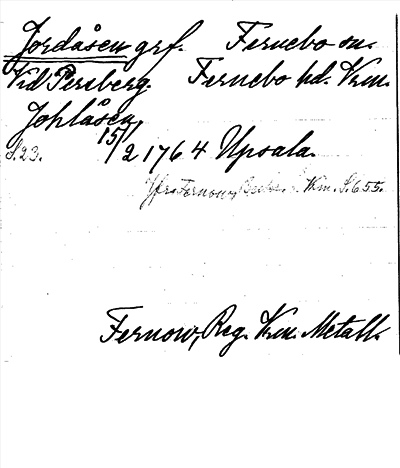 Jordåsen grf. Fernebo sn.
Vid Persberg. Fernebo hd. Vrm.
Johlåsen,
S.23. 15/2 1764 Upsala.
Jfr. Fernow, Vrm. S.655.
Fernow, Reg. Vrm. Metall.